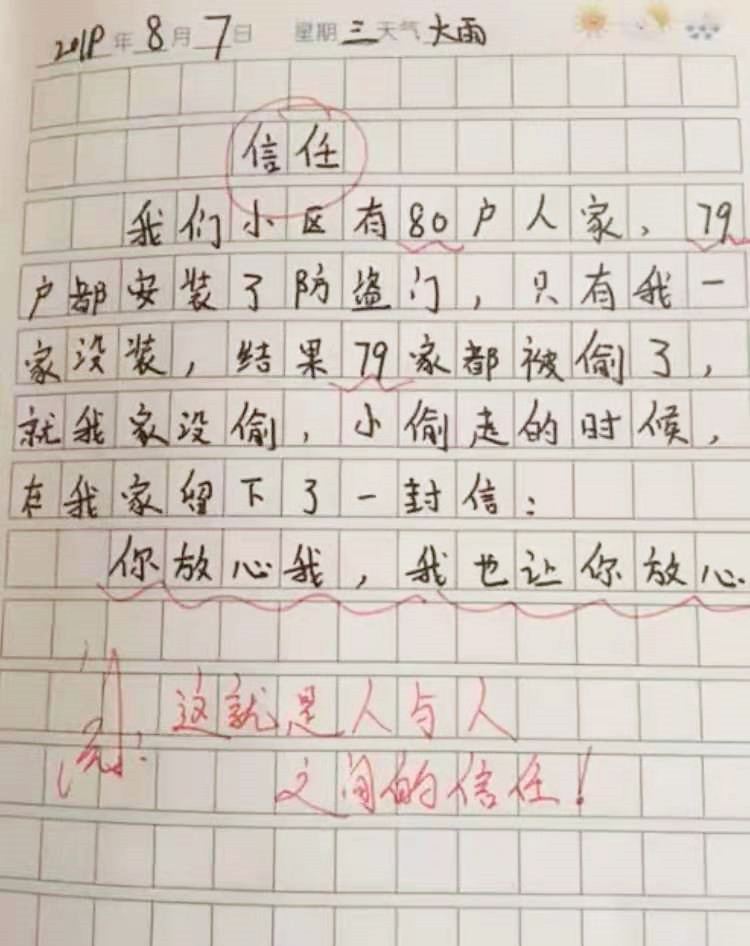 2019年8月7日 星期三天气大雨
信任
我们小区有80户人家，79
户都安装了防盗门，只有我一
家没装，结果79家都被偷了，
就我家没偷，小偷走的时候，
在我家留下了一封信：
你放心我，我也让你放心
这就是人与人
之间的信任！